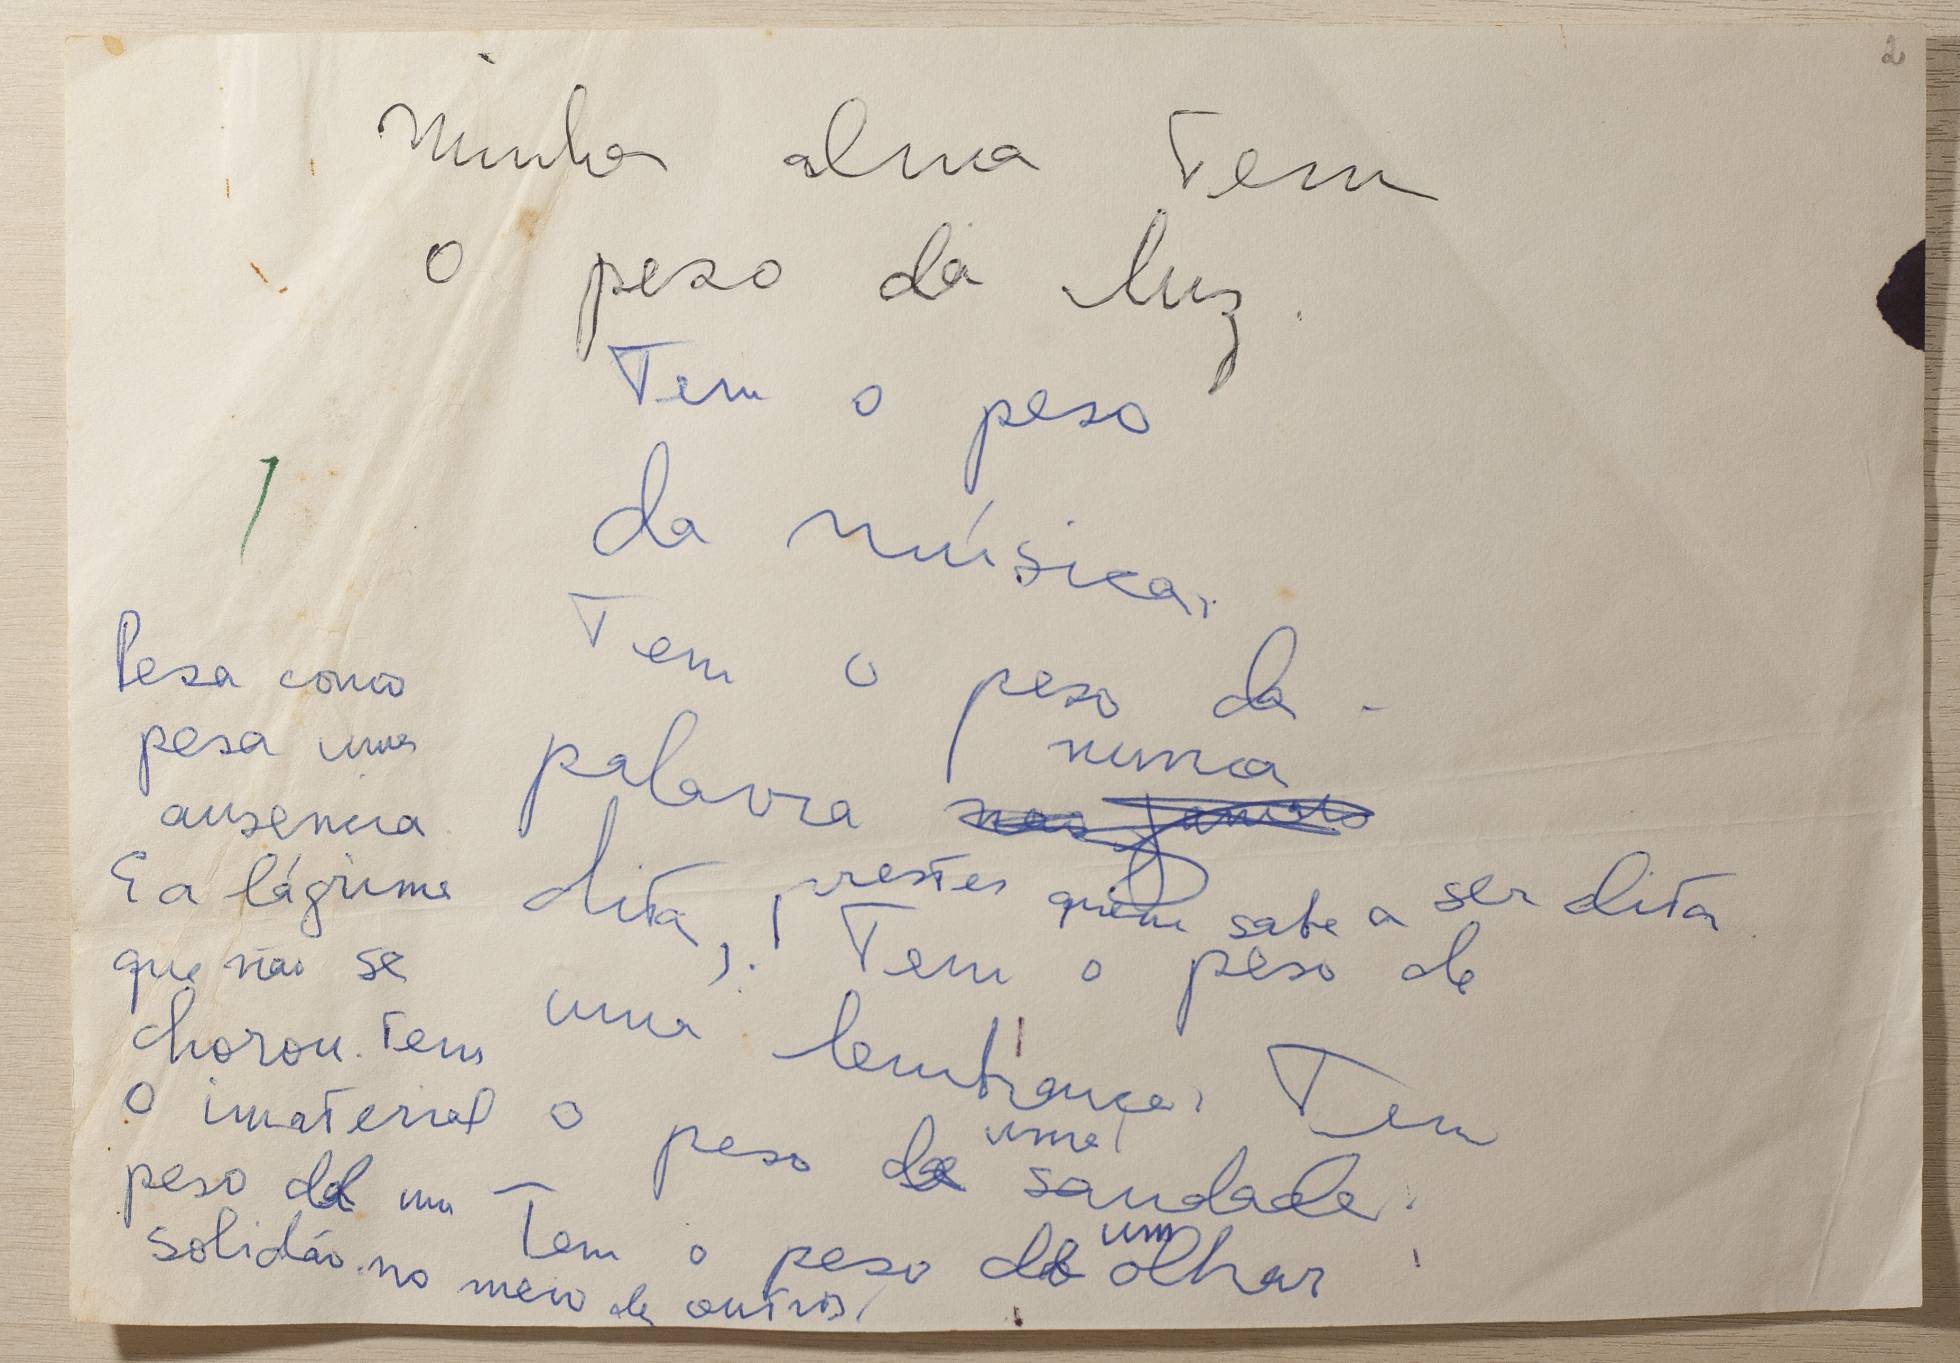 2
Minha alma tem
o peso da luz.
Tem o peso
da música.
Tem o peso da
palavra nunca
dita, prestes quem sabe a ser dita.
Tem o peso de
uma lembrança. Tem
o peso de uma saudade.
Tem o peso de um olhar
Pesa como
pesa uma
ausencia.
E a lágrima
que não se
chorou. Tem
o imaterial
peso de
solidão no meio de outros.